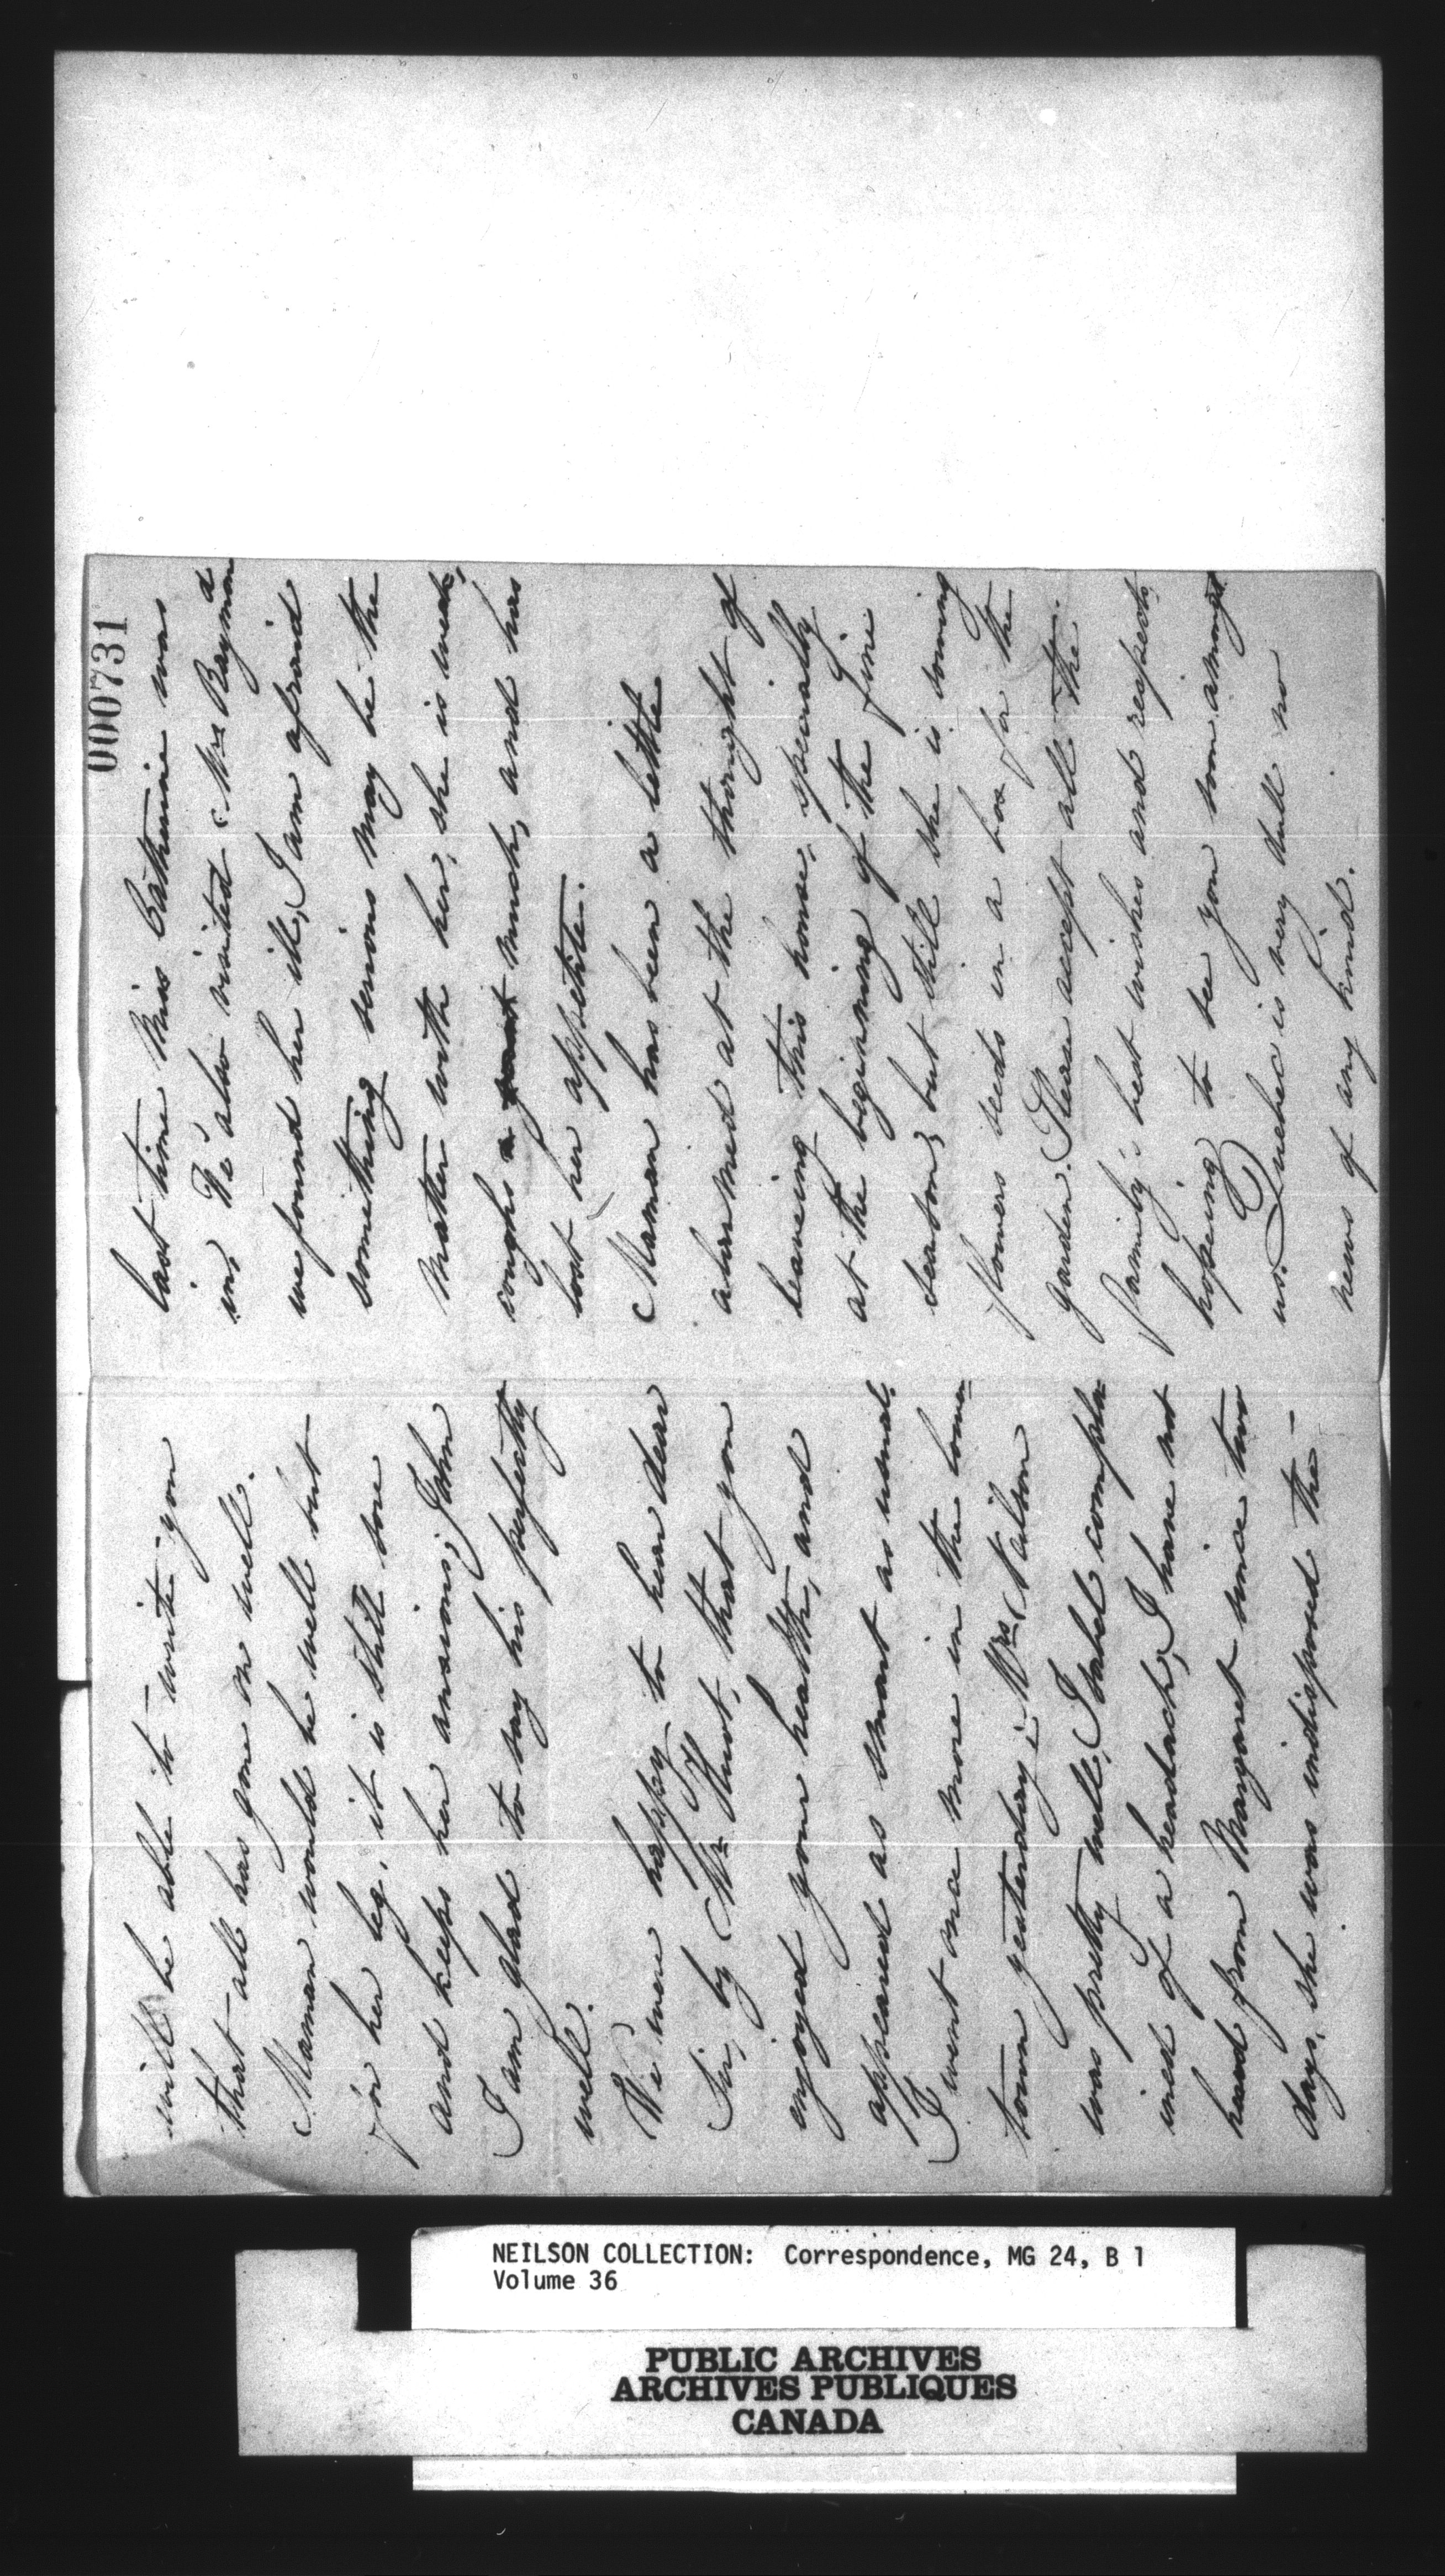 will be able to write you
that all has gone on well.
Maman would be well but
for her leg, it is still sore
and keeps her anxious; John
I am glad to say his perfectly
well.
We were happy to hear dear
Sir, by Mr that you
enjoyed your health, and
appeared as smart as usual.
I went once more in the lower=
town yesterday; Mrs Neilson
was pretty well, Isabel compla=
ined of a headach, I have not
heard from Margaret since two
days, she was indisposed the
000731
last time Miss Catherine was
in, We also visited Mrs Raymond
we found her ill, I am afraid
something serious may be the
matter with her, she is weak,
coughs much, and has
lost her appetite.
Maman has been a little
alarmed at the thought of
leaving this house, specially
at the beginning of the fine
season; but still she is sowing
flowers seeds in a box for the
garden. Please accept all the
family's best wishes and respects,
hoping to see you soon amongst
us. Quebec is very dull no
news of any kind.
NEILSON COLLECTION: Correspondence, MG 24, B 1
Volume 36
PUBLIC ARCHIVES
ARCHIVES PUBLIQUES
CANADA